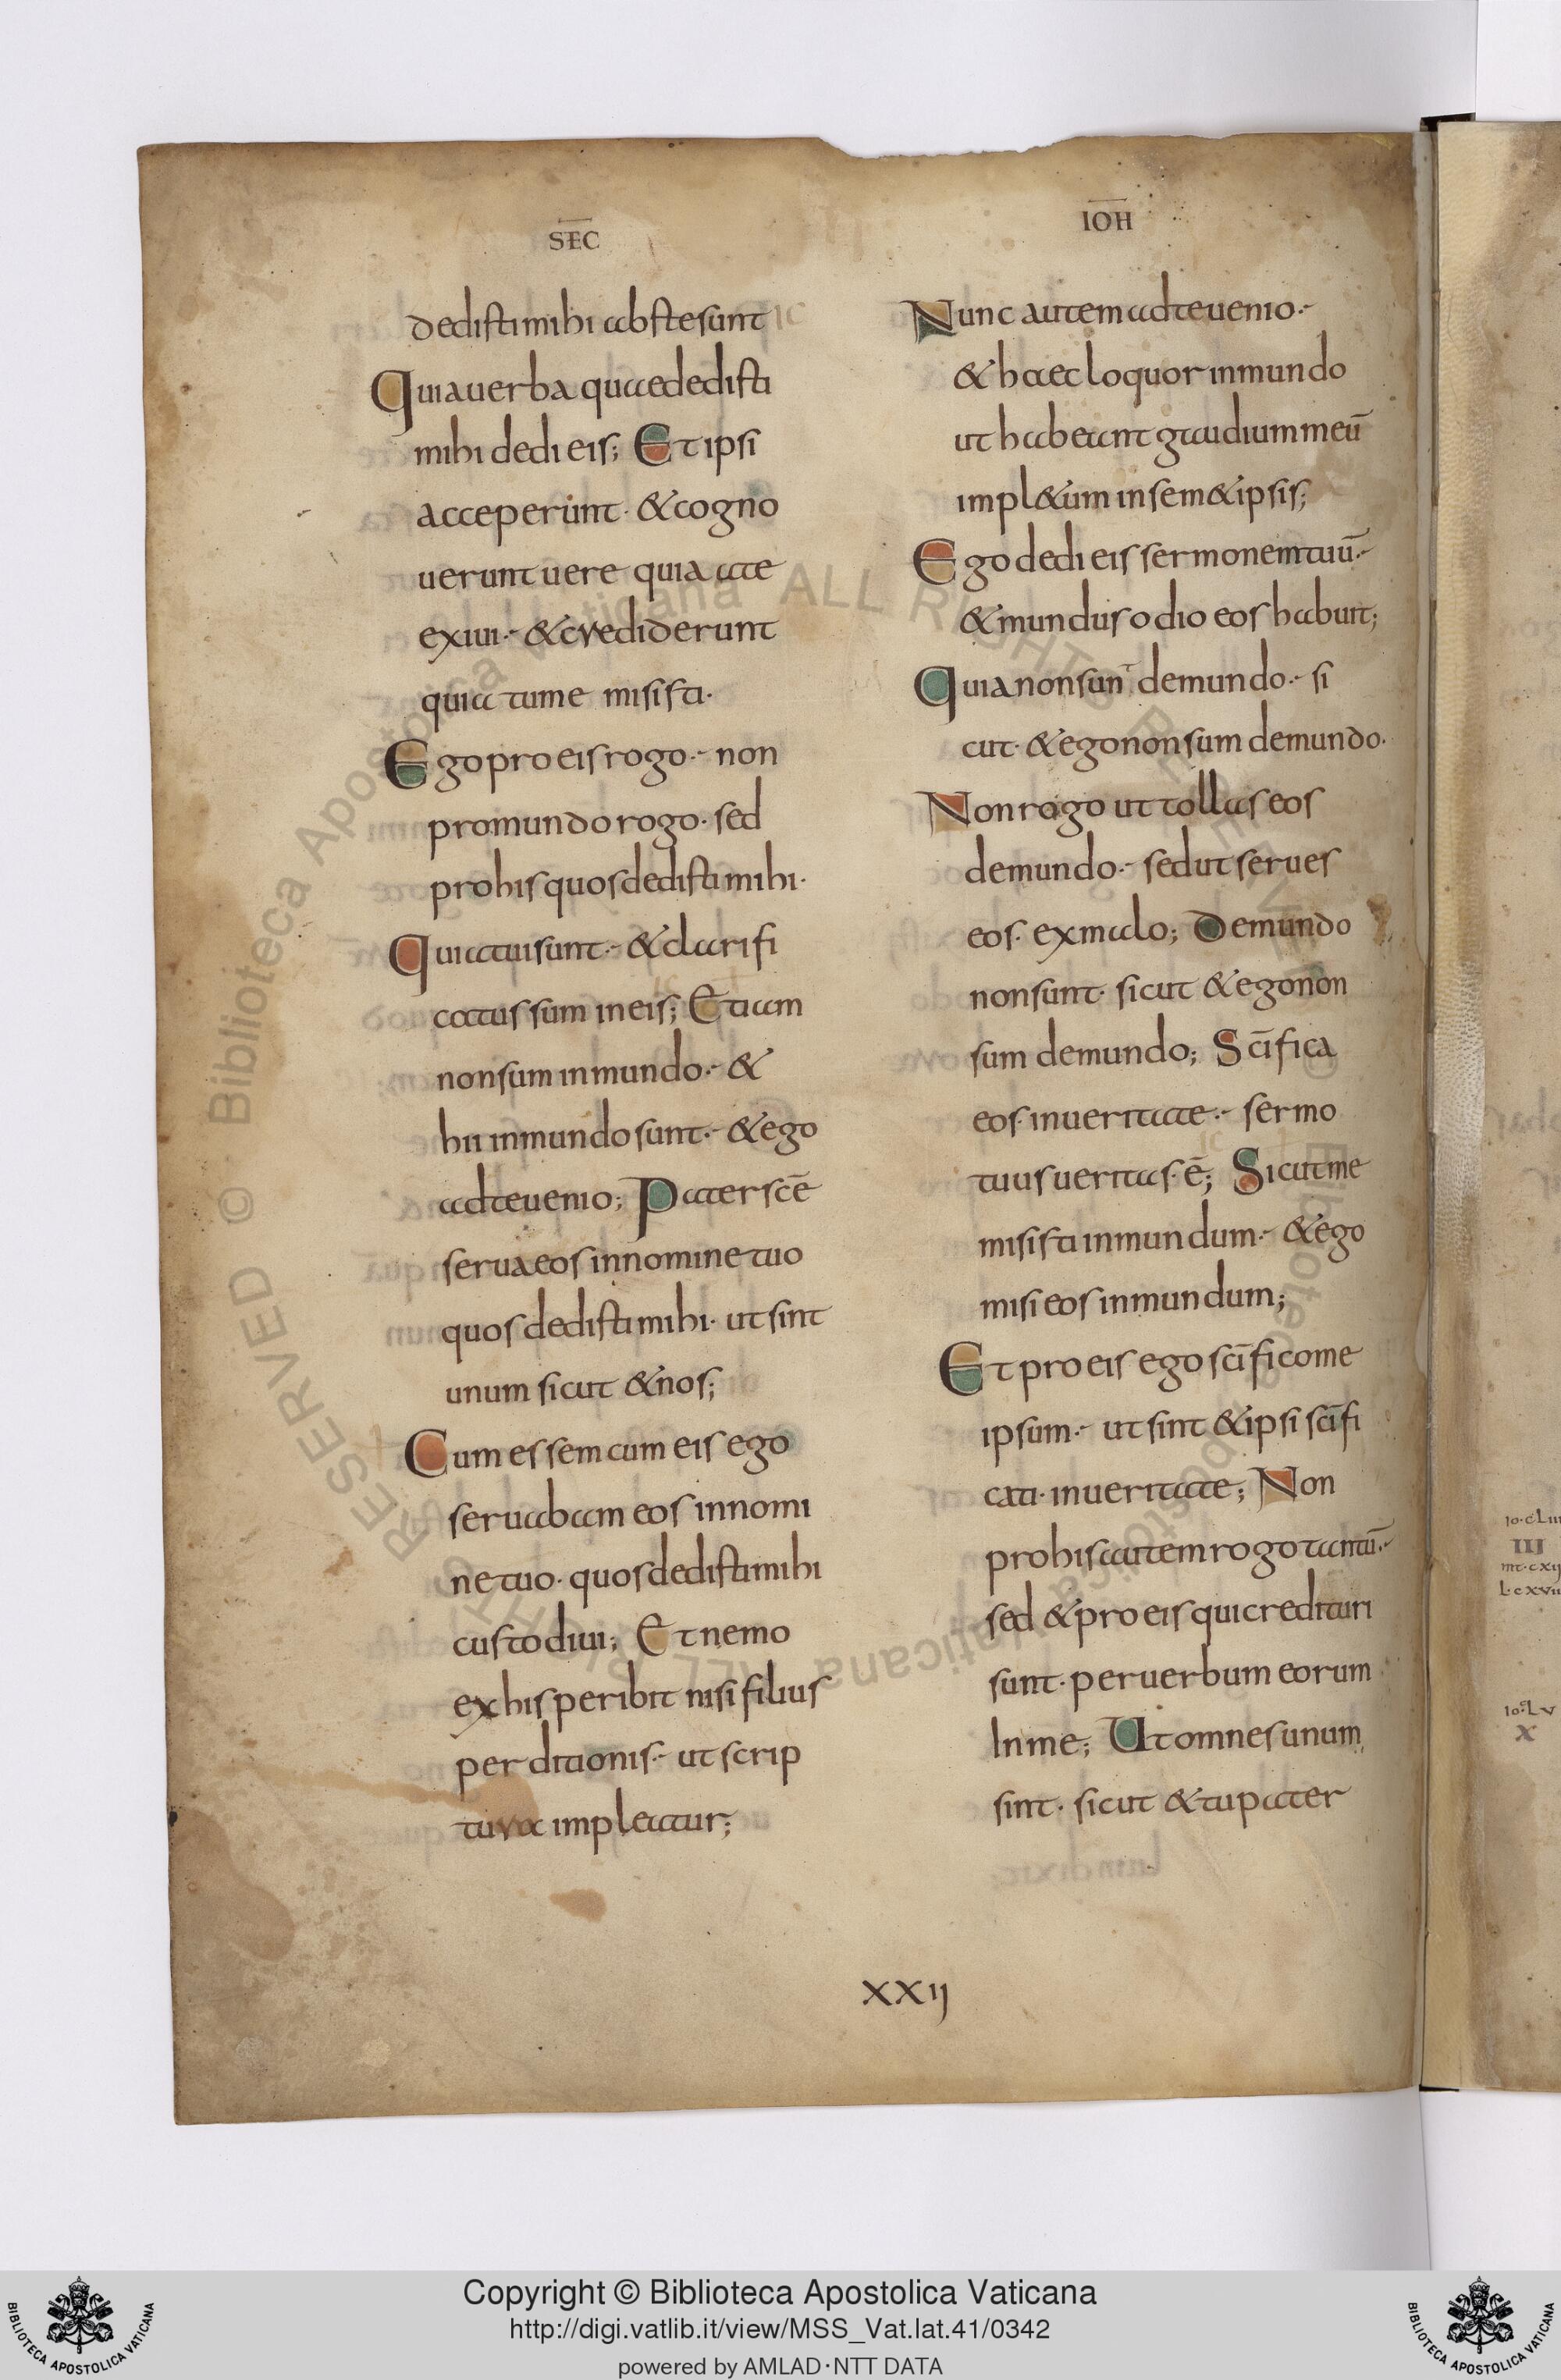 SEC
dedisti mihi abs te sunt
Quia uerba quae dedisti
mihi dedi eis; Et ipsi
acceperunt · & cogno
uerunt uere quia a te
exiui · & crediderunt
quia tu me misisti ·
Ego pro eis rogo · non
pro mundo rogo · sed
pro his quos dedisti mihi ·
Quia tui sunt · & clarifi
catus sum in eis; Et iam
non sum in mundo · &
hii in mundo sunt · & ego
ad te uenio; Pater scē
serua eos in nomine tuo
quos dedisti mihi · ut sint
unum sicut & nos;
Cum essem cum eis ego
seruabam eos in nomi
ne tuo · quos dedisti mihi
custodiui; Et nemo
ex his peribit nisi filius
perditionis · ut scrip
tura impleatur;
IOH
Nunc autem ad te uenio ·
& haec loquor in mundo
ut habeant gaudium meū
impl&um in sem&ipsis;
Ego dedi eis sermonem tuū ·
& mundus odio eos habuit;
Quia non sunt de mundo · si
cut · & ego non sum de mundo ·
Non rogo ut tollas eos
de mundo · sed ut serues
eos · ex malo; De mundo
non sunt · sicut & ego non
sum de mundo; Scīfica
eos · in ueritate · sermo
tuus ueritas · ē; Sicut me
misisti in mundum · & ego
misi eos in mundum;
Et pro eis ego scīfico me
ipsum · ut sint & ipsi scīfi
cati · in ueritate; Non
pro his autem rogo tantū ·
sed & pro eis qui credituri
sunt · per uerbum eorum
In me; Ut omnes unum
sint · sicut & tu pater
XXIJ
Copyright © Biblioteca Apostolica Vaticana
http://digi.vatlib.it/view/MSS_Vat.lat.41/0342
powered by AMLAD·NTT DATA
BIBLIOTECA APOSTOLICA VATICANA
BIBLIOTECA APOSTOLICA VATICANA